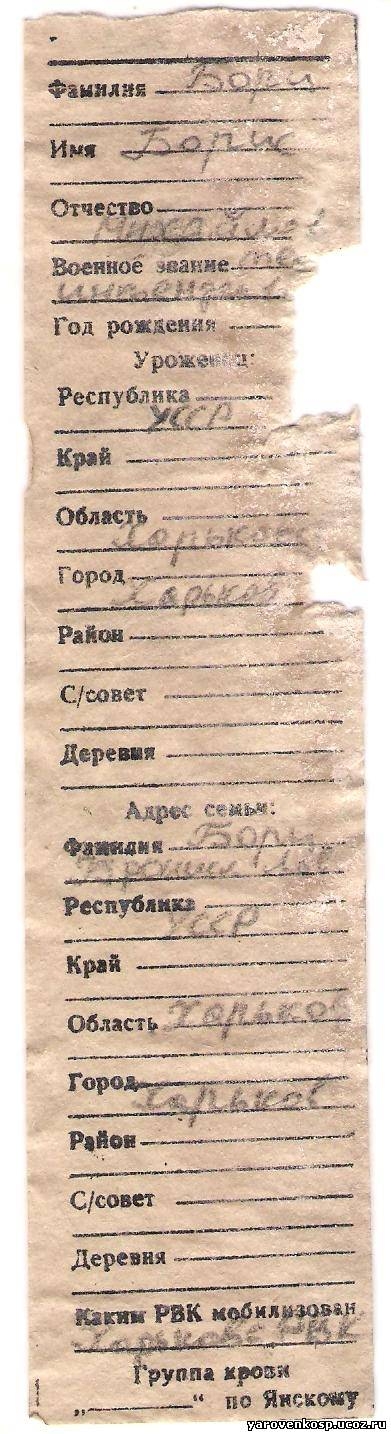 Фамилия Борц
Имя Борис
Отчество
Михайлов
Военное звание тех
интендант
Год рождения
Уроженец:
Республика
УССР
Край
Область
Харьков
Город
Харьков
Район
С/совет
Деревня
Адрес семьи:
Фамилия Борц
Республика
УССР
Край
Область Харьков
Город
Харьков
Район
С/совет
Деревня
Каким РВК мобилизован
РВК
Группа крови
„ “ по Янскому
yarovenkosp.ucoz.ru